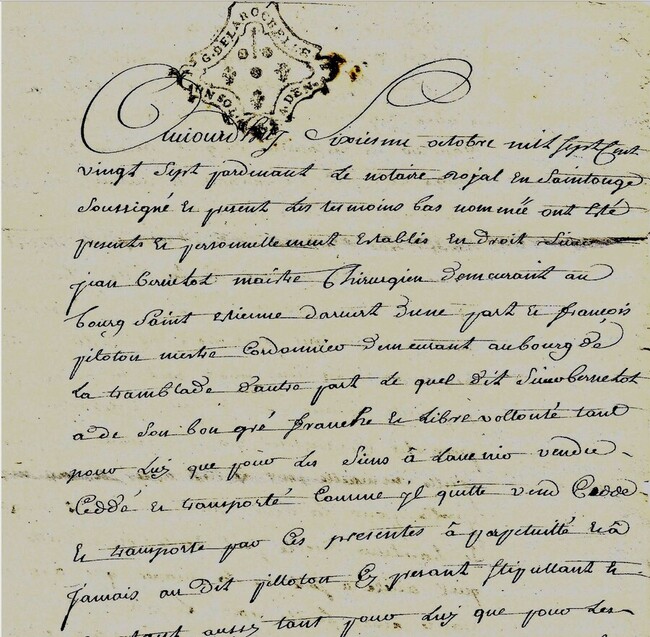 G. DE LA ROCHELLE
Aujourdhuy Sixiesme octobre mil Sept Cent
vingt Sept pardevant Le notaire Royal En Saintonge
Soussigné Et present Les tesmoins bas nommée ont Esté
presents Et personnellement Establés En droit Sieur
jean bernetot maistre Chirurgien demeurant au
bourg Saint Etienne darvert dune part Et francois
piloton mestre Cordonnier demeurant au bourg de
La tramblade dautre part Le quel dit Sieur bernetot
a de Son bon gré franche Et Libre vollonté tant
pour Luy que pour Les Siens à Lavenir vendu
Ceddé Et transporté Comme jl quitte vend Cedde
Et transporte par Ces presentes à perpetuitté Et à
Jamais au dit pilloton Cy presant Stipullant Et
aussy tant pour Luy que pour Les